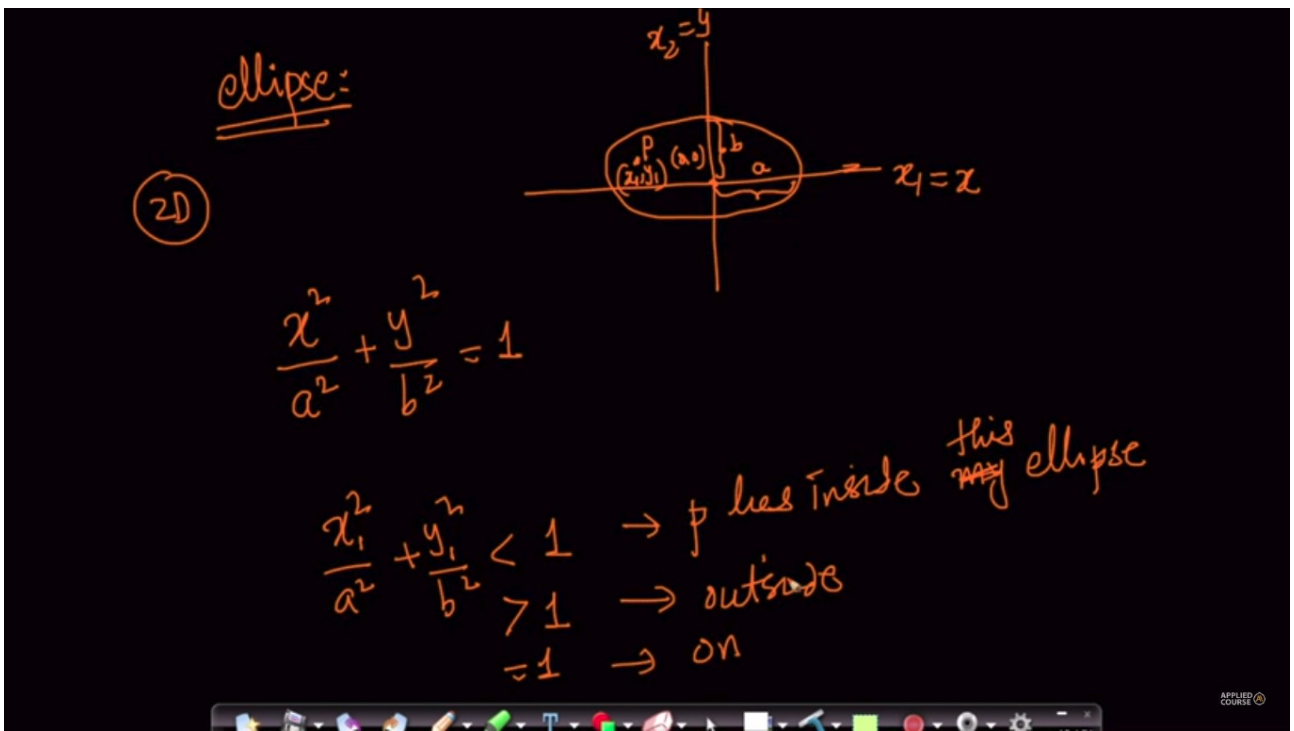 ellipse:
x₂=y
2D
P
(x₁,y₁) (0,0) b
a
x₁=x
x²/a² + y²/b² = 1
x₁²/a² + y₁²/b² < 1 → p lies inside this my ellipse
> 1 → outside
=1 → on
APPLIED
COURSE